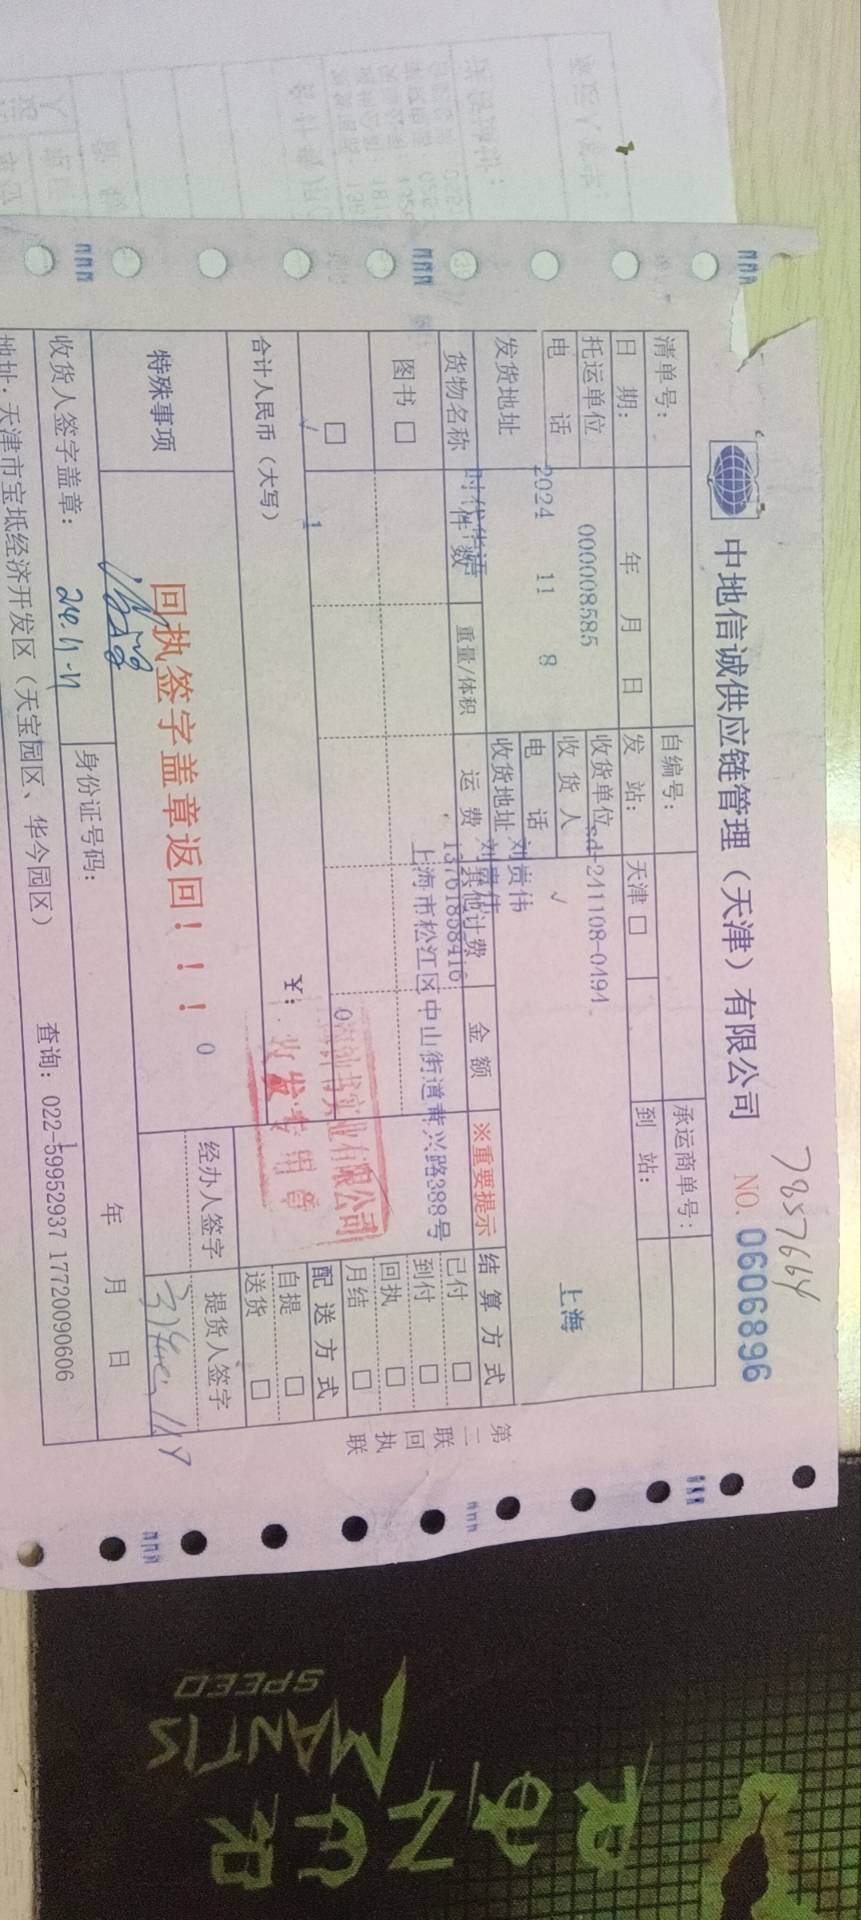 7857664
中地信诚供应链管理（天津）有限公司 NO. 0606896
清单号： 自编号： 承运商单号：
日 期： 年 月 日 发 站： 天津 □ 到 站：
托运单位 000008585 收货单位 sd-241108-0494 上海
电 话 收 货 人 √
2024 11 8 电 话 刘贵伟
发货地址 时代华语 收货地址 刘贵伟
13761858416
上海市松江区中山街道茸兴路388号
货物名称 件 数 重量/体积 运 费 其他计费 金 额 ※重要提示 结 算 方 式
图书 □ 已付 □
到付 □
回执 □
月结 □
□ √ 1 0
配 送 方 式
自提 □
送货 □
合计人民币（大写） ￥：
实业有限公司
收发专用章
特殊事项 回执签字盖章返回！！！ 0 经办人签字 提货人签字
收货人签字盖章： 24.11.11 身份证号码： 年 月 日
地址：天津市宝坻经济开发区（天宝园区、华今园区） 查询：022-59952937 17720090606
第二联 回执联
RAZER
MANTIS
SPEED